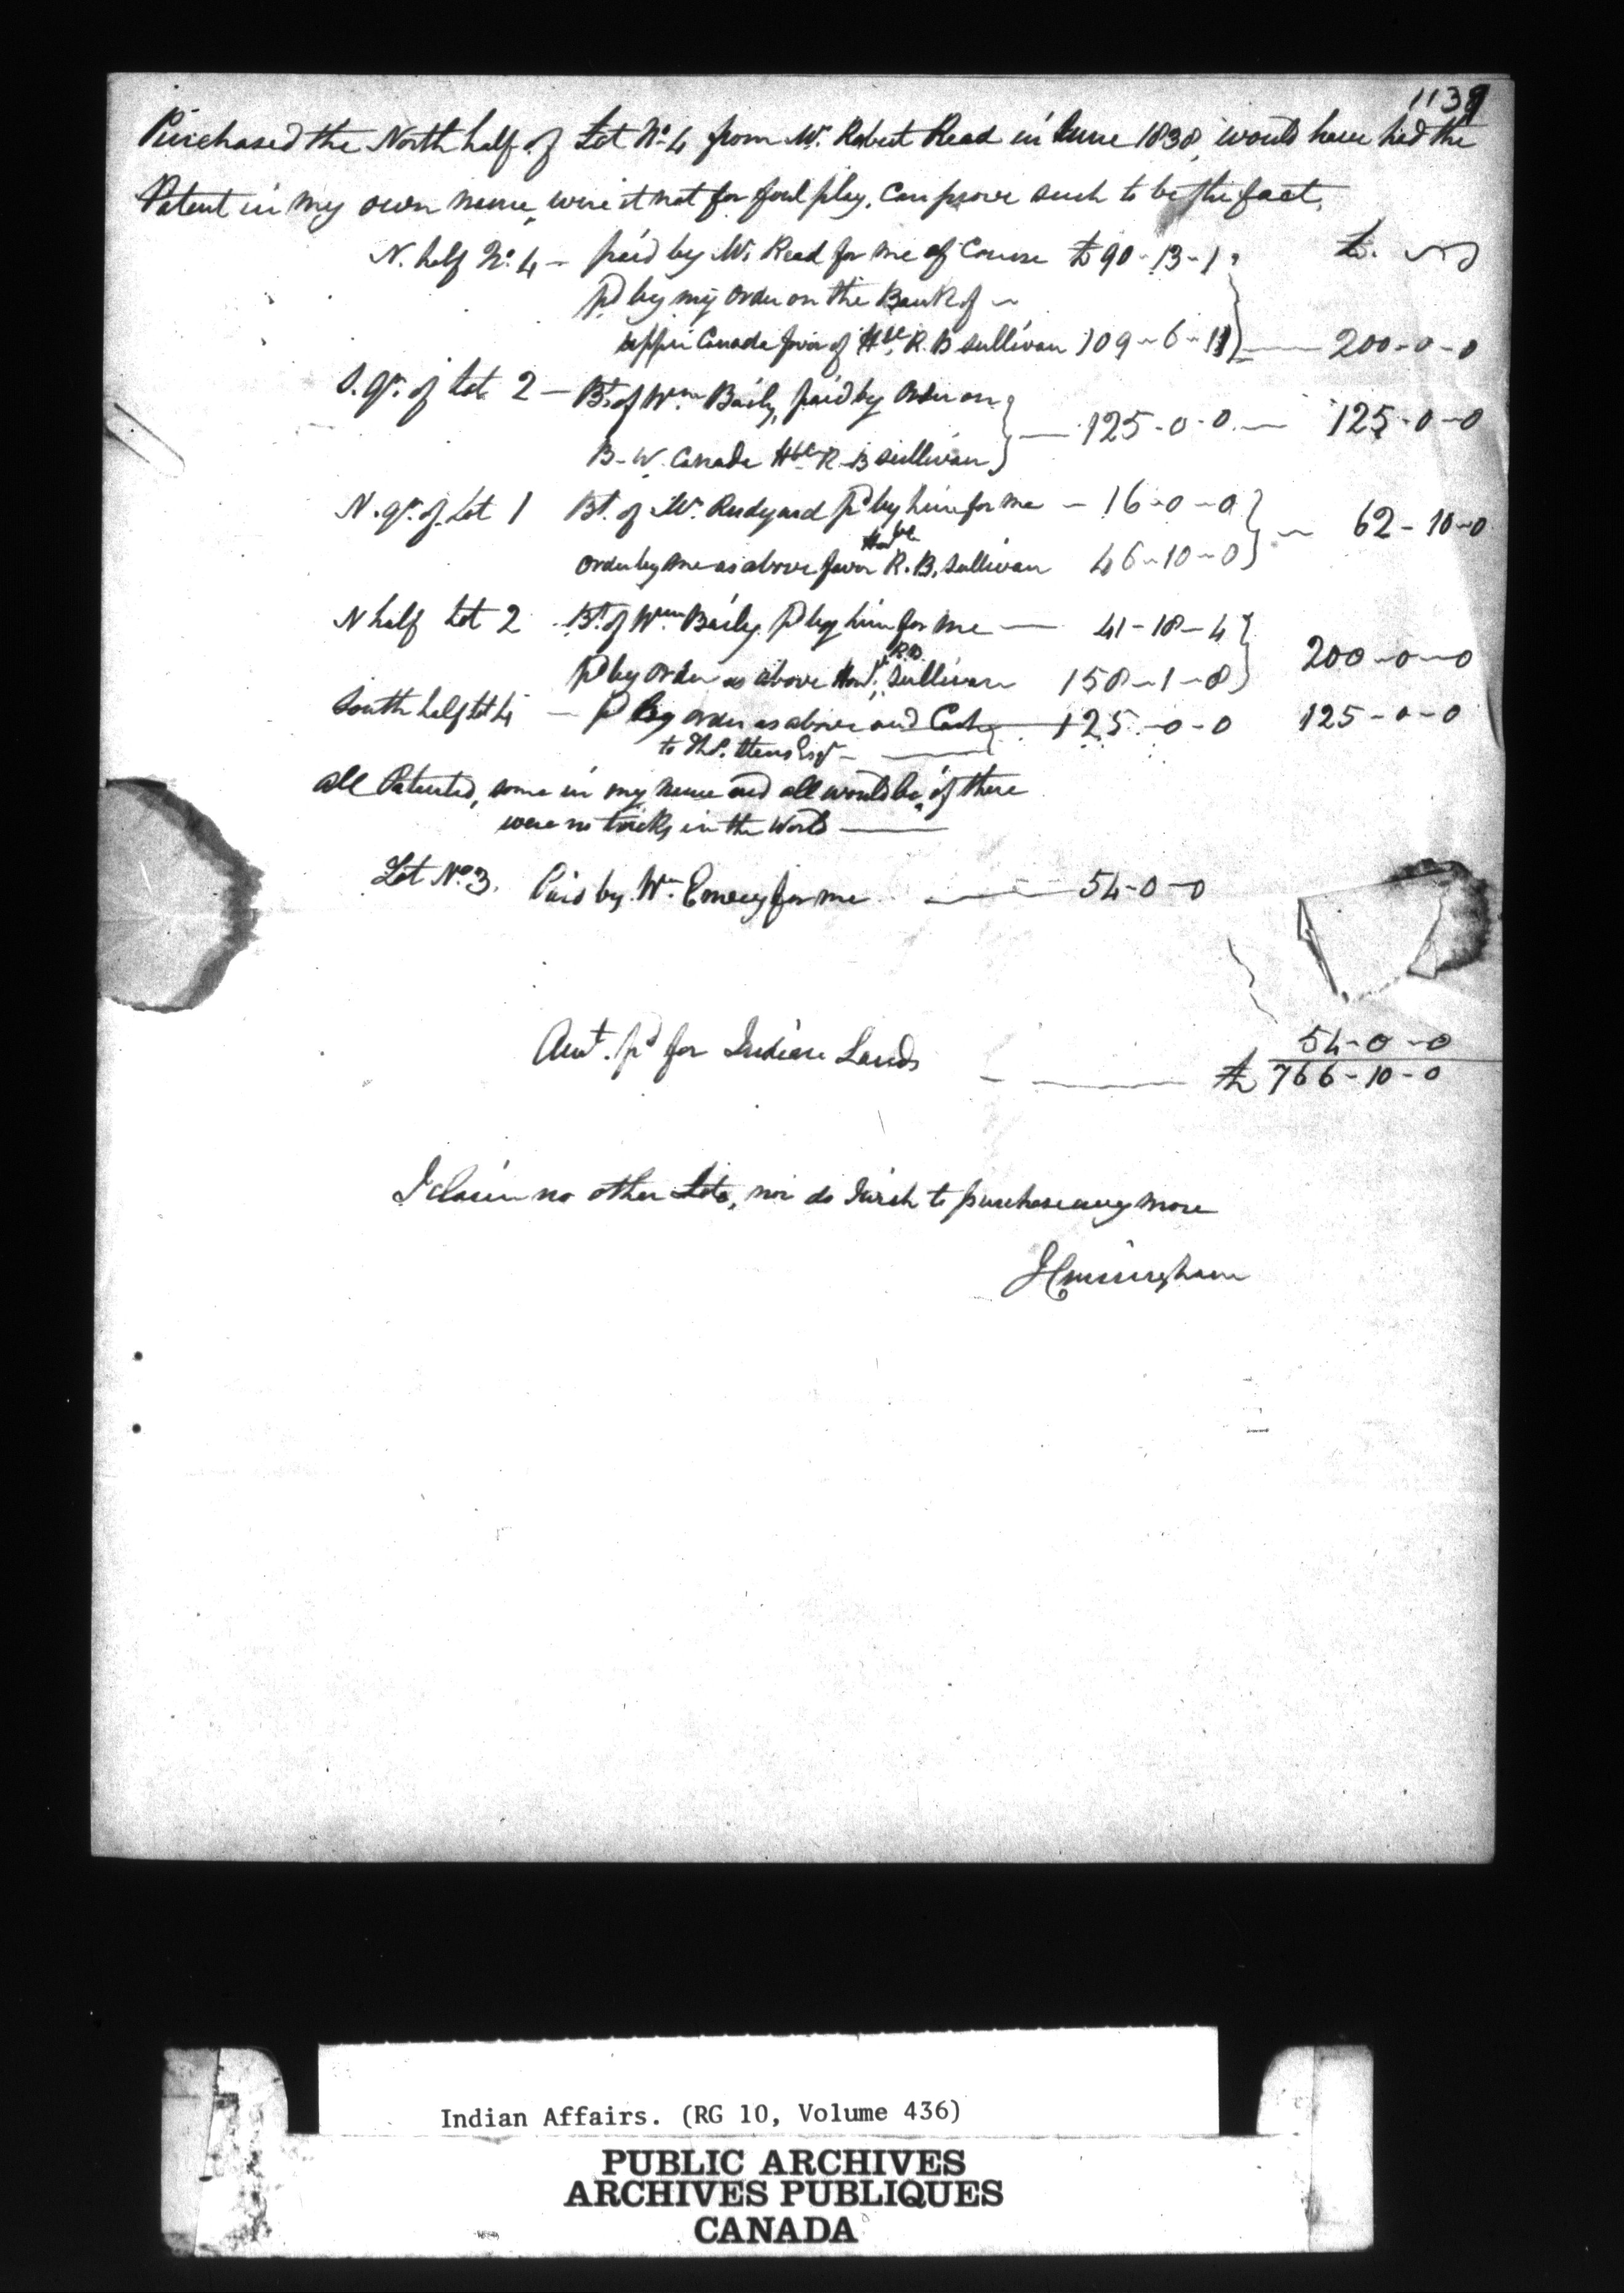 1139
Purchased the North half of Lot No. 4 from Mr. Robert Read in June 1838, would have had the
Patent in my own name, were it not for foul play, Can prove such to be the fact,
N. half No. 4 - paid by Mr Read for me of Course £ 90-13-1 £.
pd by my order on the Bank of
upper Canada favor of Hble. R. B Sullivan 109-6-11 200-0-0
S. qr. of Lot 2 - Bt. of Wm. Baily, paid by order on
B. W. Canada Hble R. B Sullivan 125-0-0 125-0-0
N. qr. of Lot 1 Bt. of Mr. Rudyard pd by him for me - 16-0-0
order by me as above favor Honble R. B. Sullivan 46-10-0 62-10-0
N half Lot 2 Bt. of Wm Baily pd by him for me 41-18-4
pd by order as above Honl. R.B. Sullivan 158-1-8 200-0-0
South half Lot 4 - pd by order as above and Cash 125-0-0 125-0-0
to Esqr
all Patented, some in my name and all would be, if there
were no tricks in the World
Lot No. 3. Paid by Wm. Emery for me 54-0-0
54-0-0
Amt. pd for Indian Lands £ 766-10-0
I claim no other Lots, nor do I wish to purchase any more
J Cunningham
Indian Affairs. (RG 10, Volume 436)
PUBLIC ARCHIVES
ARCHIVES PUBLIQUES
CANADA